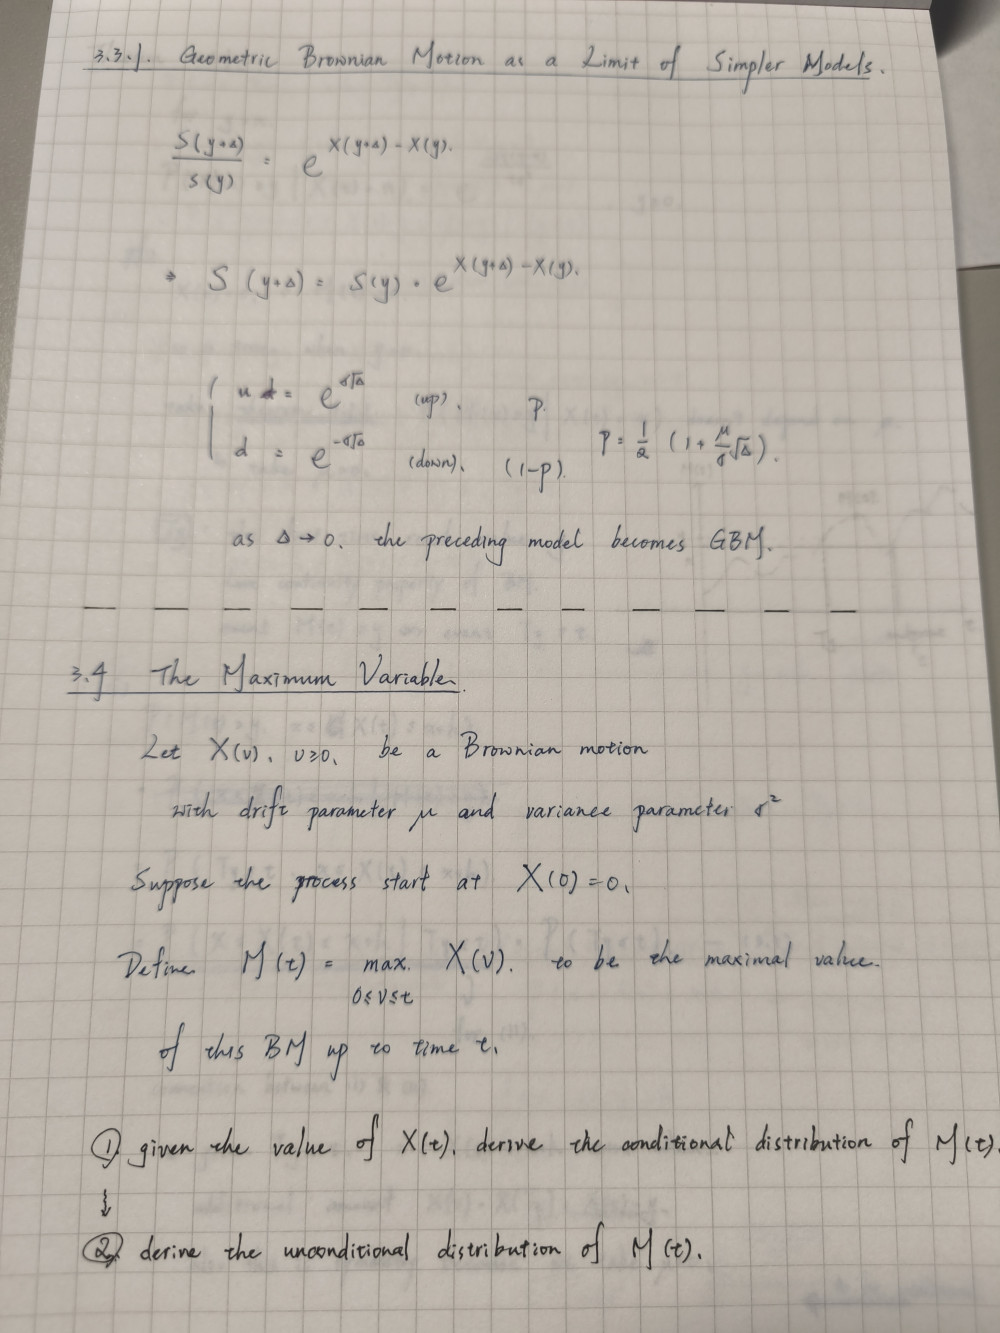 3.3.1. Geometric Brownian Motion as a Limit of Simpler Models.
S(y+Δ) / S(y) = e^{X(y+Δ) - X(y)}.
⇒ S(y+Δ) = S(y) · e^{X(y+Δ) - X(y)}.
u = e^{σ√Δ} (up). p.
d = e^{-σ√Δ} (down). (1-p). p = 1/2 (1 + μ/σ √Δ).
as Δ → 0. the preceding model becomes GBM.
3.4 The Maximum Variable.
Let X(v), v≥0, be a Brownian motion
with drift parameter μ and variance parameter σ²
Suppose the process start at X(0)=0.
Define M(t) = max X(v). to be the maximal value.
0≤v≤t
of this BM up to time t.
① given the value of X(t). derive the conditional distribution of M(t).
↓
② derive the unconditional distribution of M(t).